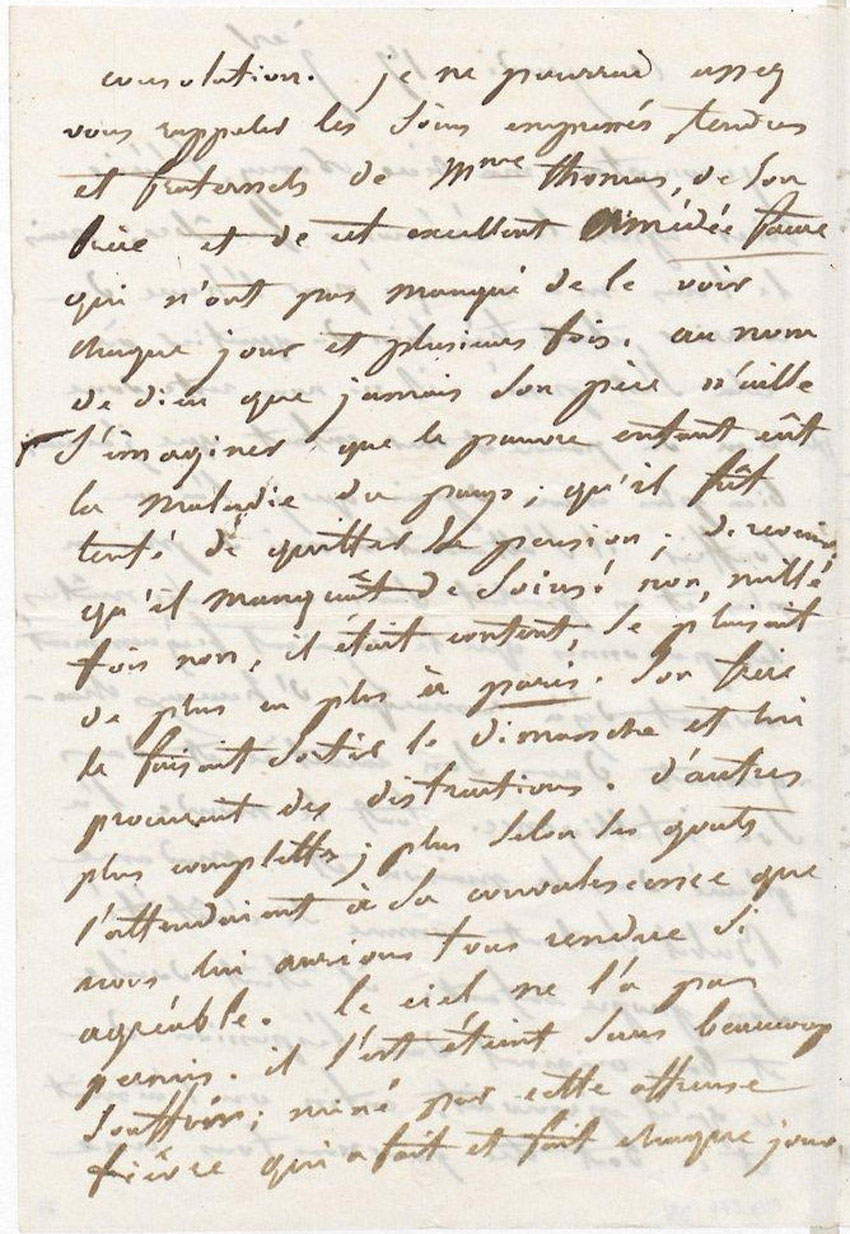 consolation. je ne pourrai assez
vous rappeler les soins empressés, tendres
et fraternels de Mme thomas, de son
frère et de cet excellent Amédée faure
qui n'ont pas manqué de le voir
chaque jour et plusieurs fois. au nom
de dieu que jamais son père n'aille
s'imaginer que le pauvre enfant eût
la maladie du pays; qu'il fût
tenté de quitter sa pension;
qu'il manquât de soins! non, mille
fois non, il était content, se plaisait
de plus en plus à paris. Son frère
le faisait sortir le dimanche et lui
procurait des distractions. d'autres
plus complettes; plus selon ses gouts
l'attendaient à sa convalescence que
nous lui aurions tous rendue si
agréable. le ciel ne l'a pas
permis. il s'est éteint sans beaucoup
souffrir; miné par cette affreuse
fièvre qui a fait et fait chaque jour